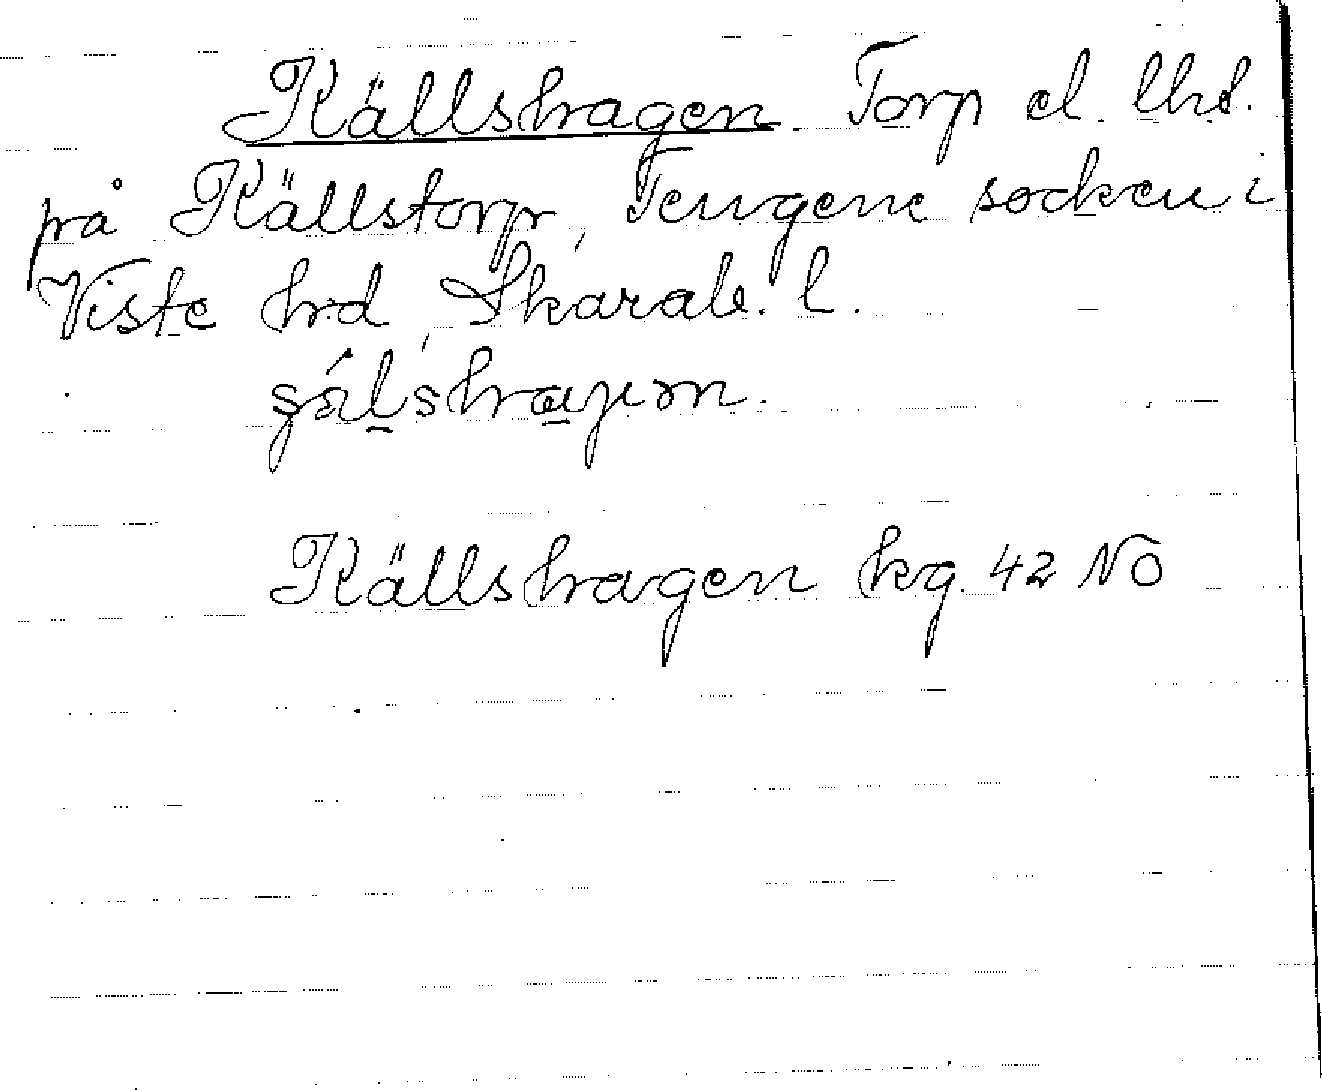 Källshagen Torp el. lht.
på Källstorp, Tengene socken i
Viste hrd, Skarab. l.
Källshagen kg. 42 NO